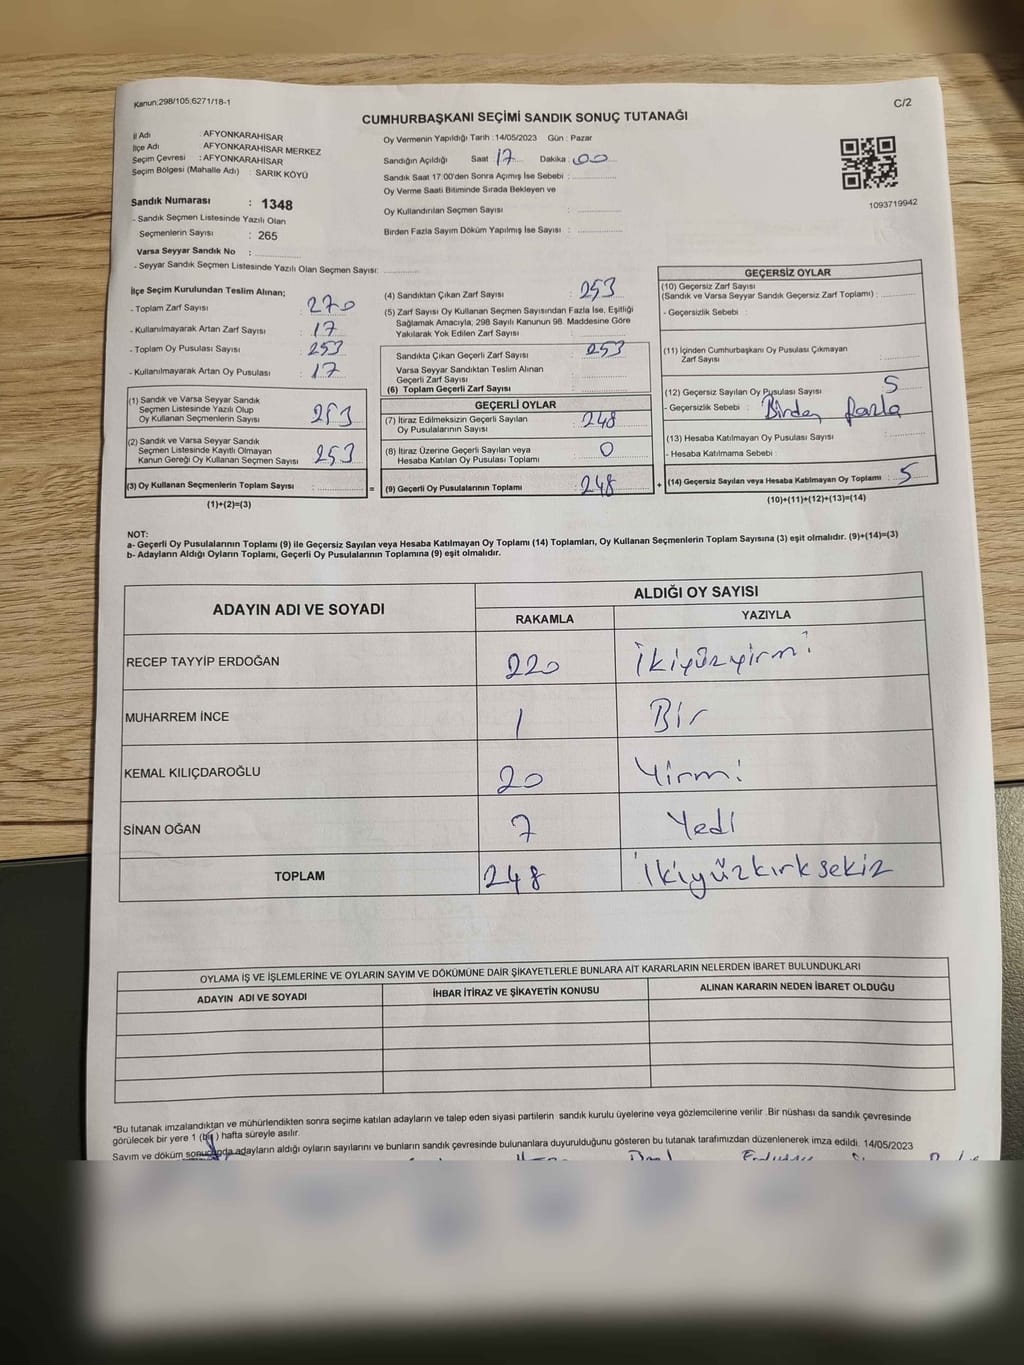 Kanun;298/105;6271/18-1
C/2
CUMHURBAŞKANI SEÇİMİ SANDIK SONUÇ TUTANAĞI
İl Adı : AFYONKARAHİSAR
İlçe Adı : AFYONKARAHİSAR MERKEZ
Seçim Çevresi : AFYONKARAHİSAR
Seçim Bölgesi (Mahalle Adı) : SARIK KÖYÜ
Sandık Numarası : 1348
- Sandık Seçmen Listesinde Yazılı Olan
Seçmenlerin Sayısı : 265
Varsa Seyyar Sandık No :
- Seyyar Sandık Seçmen Listesinde Yazılı Olan Seçmen Sayısı:
Oy Vermenin Yapıldığı Tarih : 14/05/2023 Gün : Pazar
Sandığın Açıldığı Saat 17 Dakika : 00
Sandık Saat 17:00'den Sonra Açımış İse Sebebi :
Oy Verme Saati Bitiminde Sırada Bekleyen ve
Oy Kullandırılan Seçmen Sayısı :
Birden Fazla Sayım Döküm Yapılmış İse Sayısı :
1093719942
İlçe Seçim Kurulundan Teslim Alınan;
- Toplam Zarf Sayısı : 270
- Kullanılmayarak Artan Zarf Sayısı : 17
- Toplam Oy Pusulası Sayısı : 253
- Kullanılmayarak Artan Oy Pusulası : 17
(1) Sandık ve Varsa Seyyar Sandık
Seçmen Listesinde Yazılı Olup
Oy Kullanan Seçmenlerin Sayısı : 253
(2) Sandık ve Varsa Seyyar Sandık
Seçmen Listesinde Kayıtlı Olmayan
Kanun Gereği Oy Kullanan Seçmen Sayısı : 253
(3) Oy Kullanan Seçmenlerin Toplam Sayısı :
(1)+(2)=(3)
(4) Sandıktan Çıkan Zarf Sayısı : 253
(5) Zarf Sayısı Oy Kullanan Seçmen Sayısından Fazla İse, Eşitliği
Sağlamak Amacıyla; 298 Sayılı Kanunun 98. Maddesine Göre
Yakılarak Yok Edilen Zarf Sayısı :
Sandıkta Çıkan Geçerli Zarf Sayısı : 253
Varsa Seyyar Sandıktan Teslim Alınan
Geçerli Zarf Sayısı :
(6) Toplam Geçerli Zarf Sayısı :
GEÇERLİ OYLAR
(7) İtiraz Edilmeksizin Geçerli Sayılan
Oy Pusulalarının Sayısı : 248
(8) İtiraz Üzerine Geçerli Sayılan veya
Hesaba Katılan Oy Pusulası Toplamı : 0
= (9) Geçerli Oy Pusulalarının Toplamı : 248
GEÇERSİZ OYLAR
(10) Geçersiz Zarf Sayısı
(Sandık ve Varsa Seyyar Sandık Geçersiz Zarf Toplamı) :
- Geçersizlik Sebebi :
(11) İçinden Cumhurbaşkanı Oy Pusulası Çıkmayan
Zarf Sayısı :
(12) Geçersiz Sayılan Oy Pusulası Sayısı : 5
- Geçersizlik Sebebi : Birden fazla
(13) Hesaba Katılmayan Oy Pusulası Sayısı :
- Hesaba Katılmama Sebebi :
+ (14) Geçersiz Sayılan veya Hesaba Katılmayan Oy Toplamı : 5
(10)+(11)+(12)+(13)=(14)
NOT:
a- Geçerli Oy Pusulalarının Toplamı (9) ile Geçersiz Sayılan veya Hesaba Katılmayan Oy Toplamı (14) Toplamları, Oy Kullanan Seçmenlerin Toplam Sayısına (3) eşit olmalıdır. (9)+(14)=(3)
b- Adayların Aldığı Oyların Toplamı, Geçerli Oy Pusulalarının Toplamına (9) eşit olmalıdır.
ADAYIN ADI VE SOYADI
ALDIĞI OY SAYISI
RAKAMLA YAZIYLA
RECEP TAYYİP ERDOĞAN 220 İkiyüzyirmi
MUHARREM İNCE 1 Bir
KEMAL KILIÇDAROĞLU 20 Yirmi
SİNAN OĞAN 7 Yedi
TOPLAM 248 İkiyüzkırksekiz
OYLAMA İŞ VE İŞLEMLERİNE VE OYLARIN SAYIM VE DÖKÜMÜNE DAİR ŞİKAYETLERLE BUNLARA AİT KARARLARIN NELERDEN İBARET BULUNDUKLARI
ADAYIN ADI VE SOYADI İHBAR İTİRAZ VE ŞİKAYETİN KONUSU ALINAN KARARIN NEDEN İBARET OLDUĞU
*Bu tutanak imzalandıktan ve mühürlendikten sonra seçime katılan adayların ve talep eden siyasi partilerin sandık kurulu üyelerine veya gözlemcilerine verilir .Bir nüshası da sandık çevresinde
görülecek bir yere 1 (bir) hafta süreyle asılır.
Sayım ve döküm sonucunda adayların aldığı oyların sayılarını ve bunların sandık çevresinde bulunanlara duyurulduğunu gösteren bu tutanak tarafımızdan düzenlenerek imza edildi. 14/05/2023